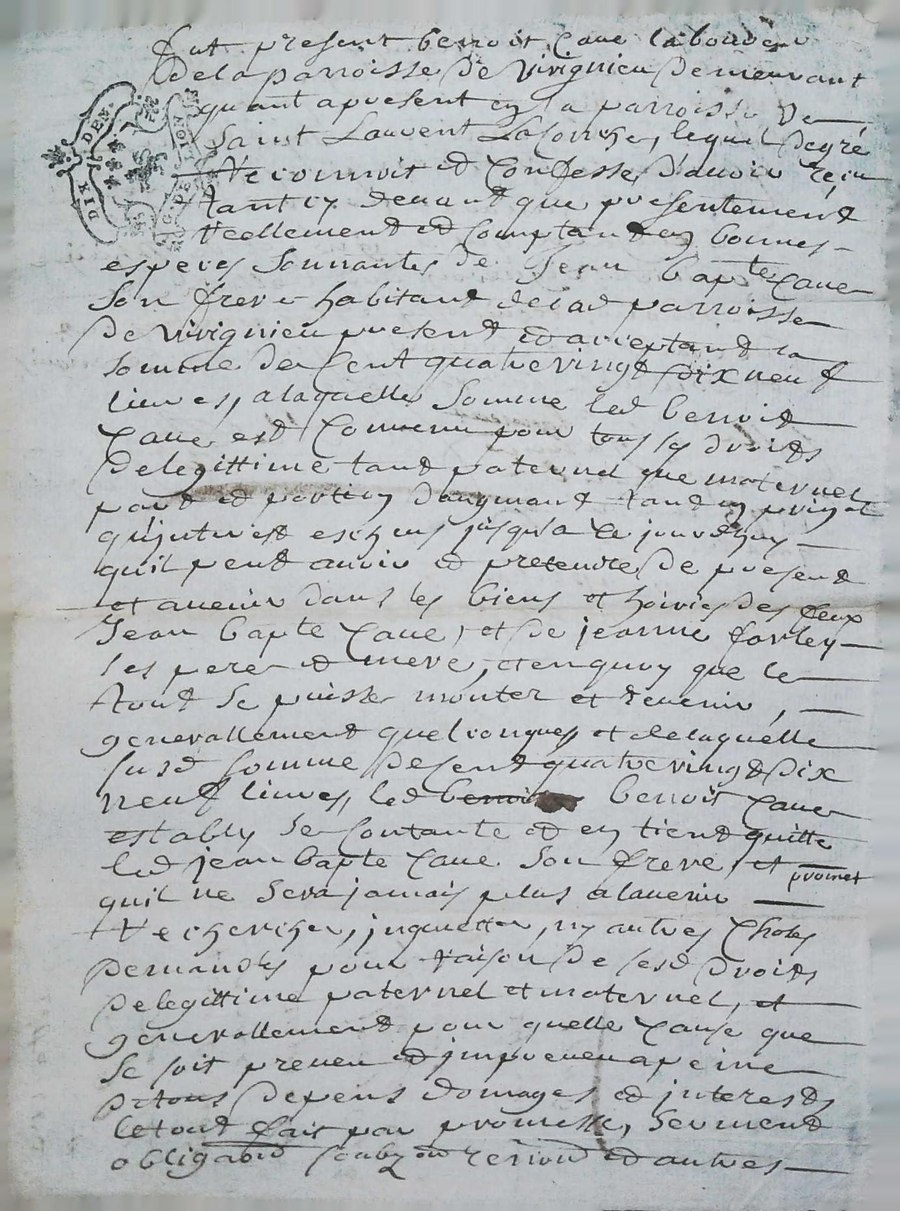 fut present benoit Caue laboureur
de la parroisse de Virignieu demeurant
quant apresent en la parroisse de
saint Laurent La Conche, lequel degré
reconnoit et confesse d'auoir reçu
tant cy deuant que presentement
reellement et comptant en bonnes
especes sonnantes de Jean bapte Caue
son frere habitant delad parroisse
de Virignieu present et acceptant la
somme de cent quatre vingt dix neuf
liures, a laquelle somme led benoit
Caue est conuenu pour tous les droits
de legittime tant paternel que maternel
part et portion daugmant tant en
qu'jnterest escheus jusqu'a ce jourdhuy
quil peut auoir et pretendre de present
et auenir dans les biens et hoiries des feux
Jean bapte Caue, et de jeanne
ses pere et mere, et en quoy que le
tout se puisse monter et reuenir,
generallement quelconques et de laquelle
susd somme de cent quatre vingt dix
neuf liures, led benoit benoit Caue
establi se contante et en tient quitte
led jean bapte Caue son frere, et promet
quil ne sera jamais plus a lauenir
recherché, jnquietté, ny autres choses
demandés pour raison de sesd droits
de legittime paternel et maternel, et
generallement pour quelle cause que
se soit preueu et jmpreueu a peine
de tous depens domages et interests
le tout fait par promesse, serment
obligaon soubzon renion et autres
DIX DEN.